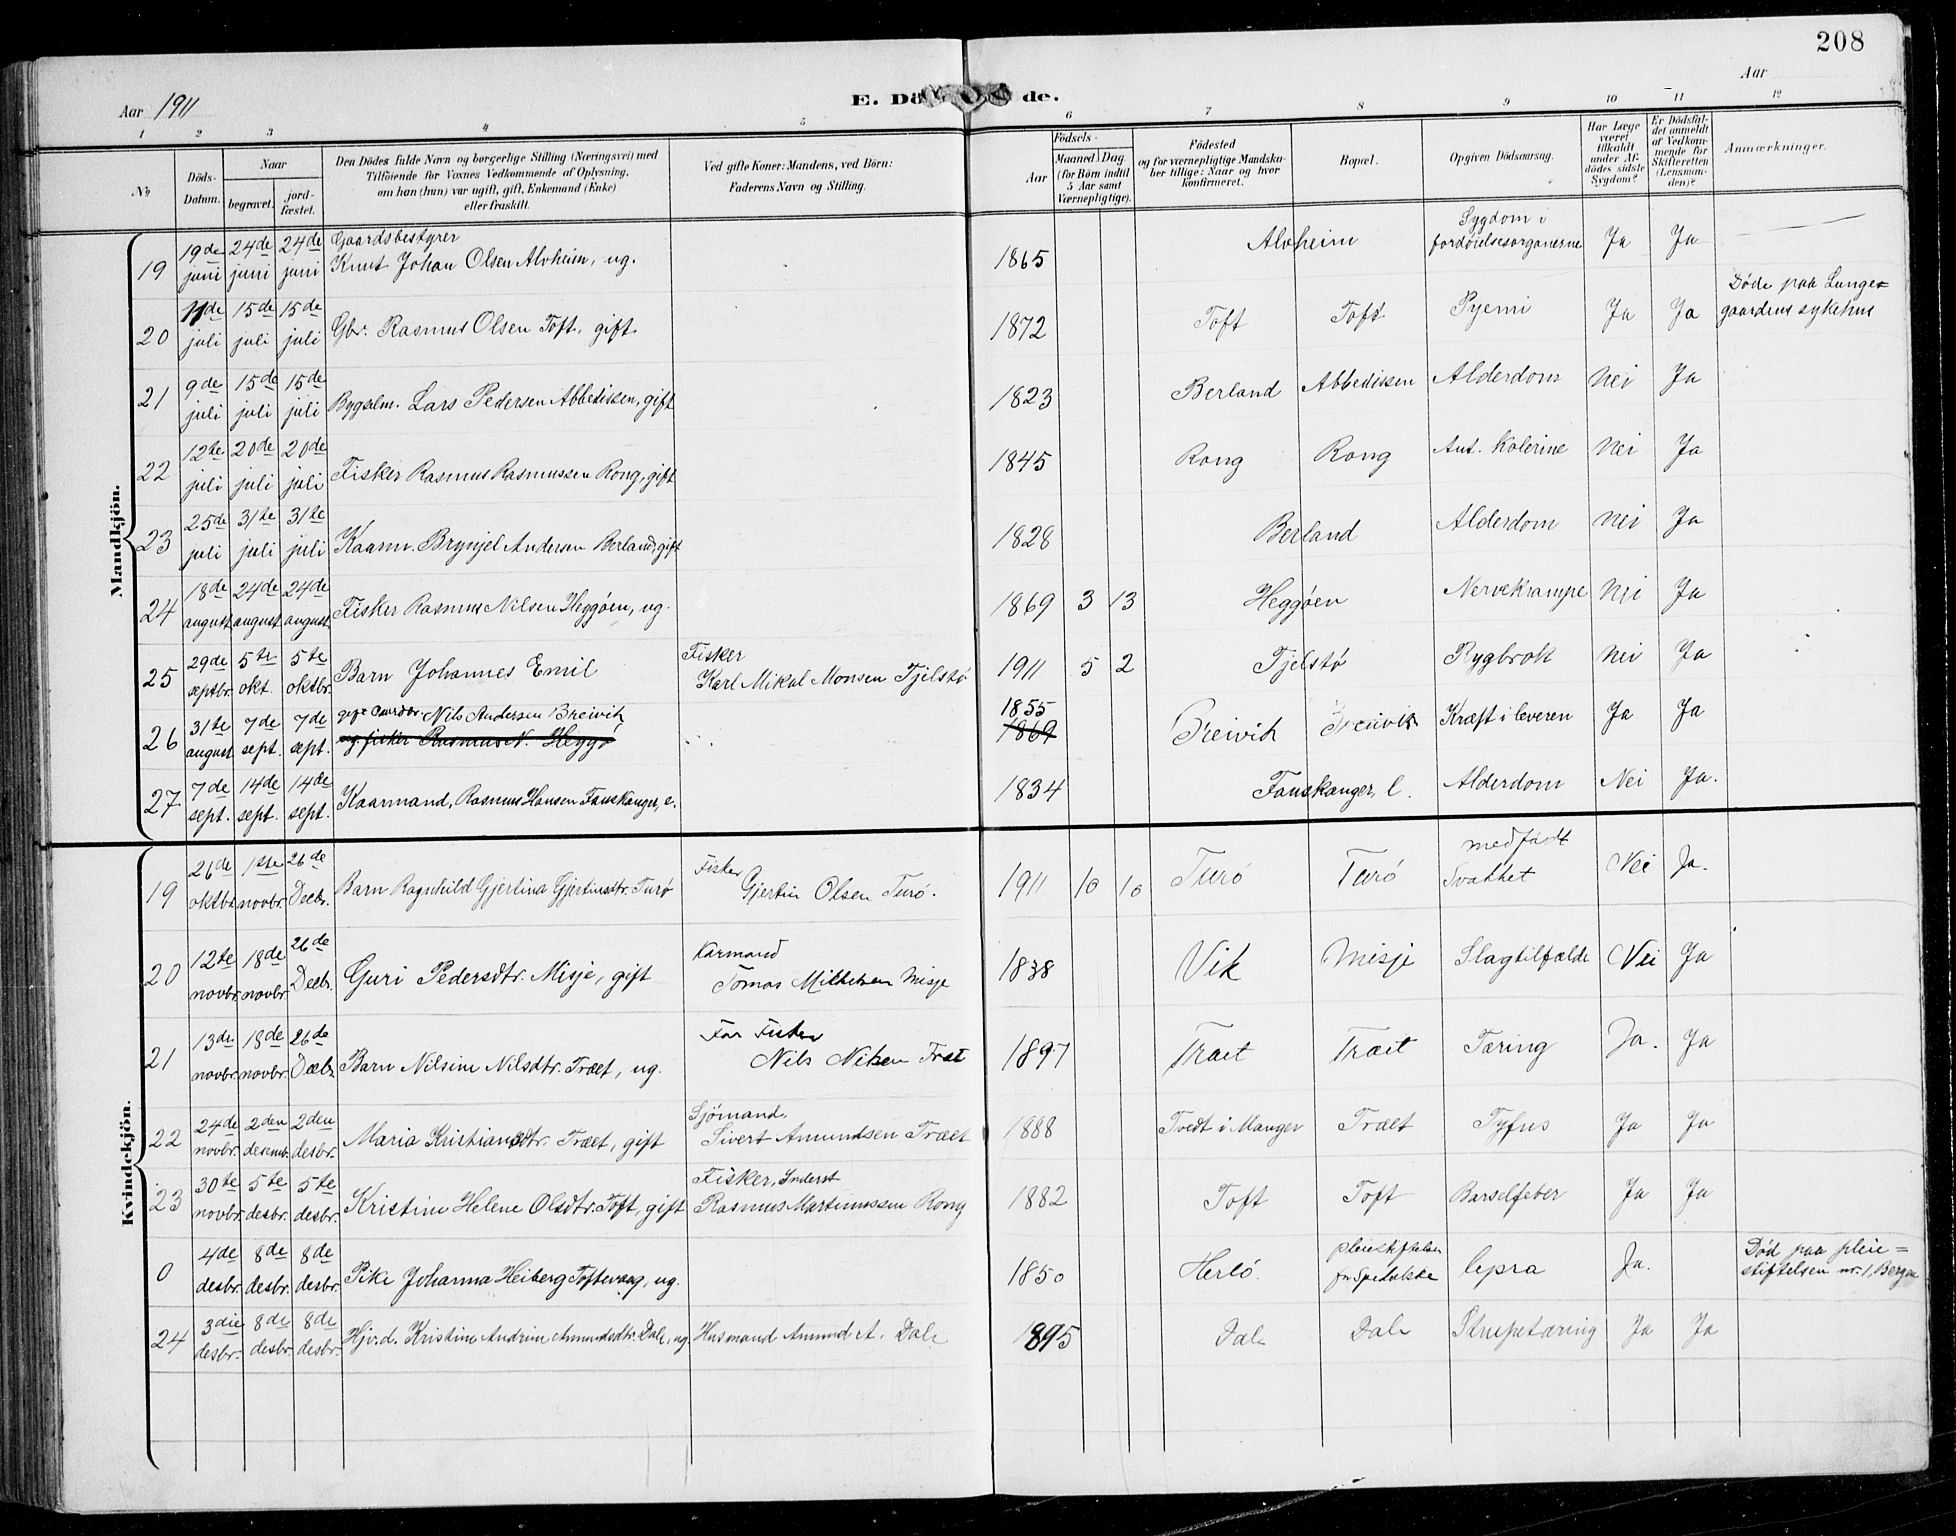 208
Aar 1911
E. Dö de.
Aar
1 2 3 4 5 6 7 8 9 10 11 12
No
Döds-Datum.
Naar
begravet.
jord-fæstet.
Den Dödes fulde Navn og borgerlige Stilling (Næringsvei) med
Tilföiende for Voxnes Vedkommende af Oplysning,
om han (hun) var ugift, gift, Enkemand (Enke)
eller fraskilt.
Ved gifte Koner: Mandens, ved Börn:
Faderens Navn og Stilling.
Födsels-
Aar
Maaned Dag
(for Börn indtil
5 Aar samt
Værnepligtige).
Födested
og for værnepligtige Mandska-
ber tillige: Naar og hvor
konfirmeret.
Bopæl.
Opgiven Dödsaarsag.
Har Læge
været
tilkaldt
under Af-
dödes sidste
Sygdom?
Er Dödsfal-
det anmeldt
af Vedkom-
mende for
Skifteretten
(Lensman-
den)?
Anmærkninger.
Mandkjön.
19 19de juni 24de juni 24de juni Gaardsbestyrer Knut Johan Olsen Alvheim, ug. 1865 Alvheim Sygdom i fordøielsesorganerne Ja Ja
20 11de juli 15de juli 15de juli Gbr. Rasmus Olsen Toft, gift 1872 Toft Toft Pyemi Ja Ja Døde paa Lunge=gaardens sykehus
21 9de juli 15de juli 15de juli Bygselm. Lars Pedersen Abbedissen, gift 1823 Berland Abbedissen Alderdom Nei Ja
22 12te juli 20de juli 20de juli Fisker Rasmus Rasmussen Rong, gift 1845 Rong Rong Ant. Kolerine Nei Ja
23 25de juli 31te juli 31te juli Kaarm. Brynjel Andersen Berland, gift 1828 Berland Alderdom Nei Ja
24 18de august 24de august 24de august Fisker Rasmus Nilsen Heggøen, ug. 1869 3 13 Heggøen Nervekrampe Nei Ja
25 29de septbr. 5te okt. 5te oktbr. Barn Johannes Emil Fisker Karl Mikal Monsen Tjelstø 1911 5 2 Tjelstø Rygbrok Nei Ja
26 31te august 7de sept. 7de sept. gift Nils Andersen Breivik ug. fisker Rasmus N. Heggø 1855 1869 Breivik Breivik Kræft i leveren Ja Ja
27 7de sept. 14de sept. 14de sept. Kaarmand, Rasmus Hansen Fauskanger, e. 1834 Fauskanger, l. Alderdom Nei Ja.
Kvindekjön.
19 26de oktbr 1ste novbr. 26de Decbr. Barn Ragnhild Gjertina Gjertinsdtr. Turø Fisker Gjertin Olsen Turø. 1911 10 10 Turø Turø medfødt Svakhet Nei Ja.
20 12te novbr. 18de novbr. 26de Decbr. Guri Pedersdtr. Misje, gift Karmand Tomas Mikkelsen Misje 1838 Vik Misje Slagtilfælde Nei Ja
21 13de novbr. 18de novbr. 26de Decbr Barn Nilsine Nilsdtr. Træet, ug. Far Fisker Nils Nilsen Træt 1897 Træet Træet Tæring Ja. Ja
22 24de novbr. 2den desembr. 2den desbr. Maria Kristiansdtr. Træet, gift Sjømand. Sivert Amundsen Træet 1888 Tvedt i Manger Træet Tyfus Ja Ja
23 30te novbr. 5te desbr. 5te desbr. Kristine Helene Olsdtr. Toft, gift Fisker, Inderst Rasmus Martinussen Rong 1882 Toft Toft Barselfeber Ja Ja
0 4de desbr. 8de desbr. 8de desbr. Pike Johanna Heiberg Toftevaag, ug. 1850 Herlø. pleiestiftelsen for Spedalske lepra Ja. Død paa pleie=stiftelsen nr. 1, Bergen
24 3die desbr. 8de desbr. 8de desbr. Hjv.d. Kristine Andrine Amundsdtr. Dale, ug. Husmand Amund A. Dale 1895 Dale Dale Strupetæring Ja Ja